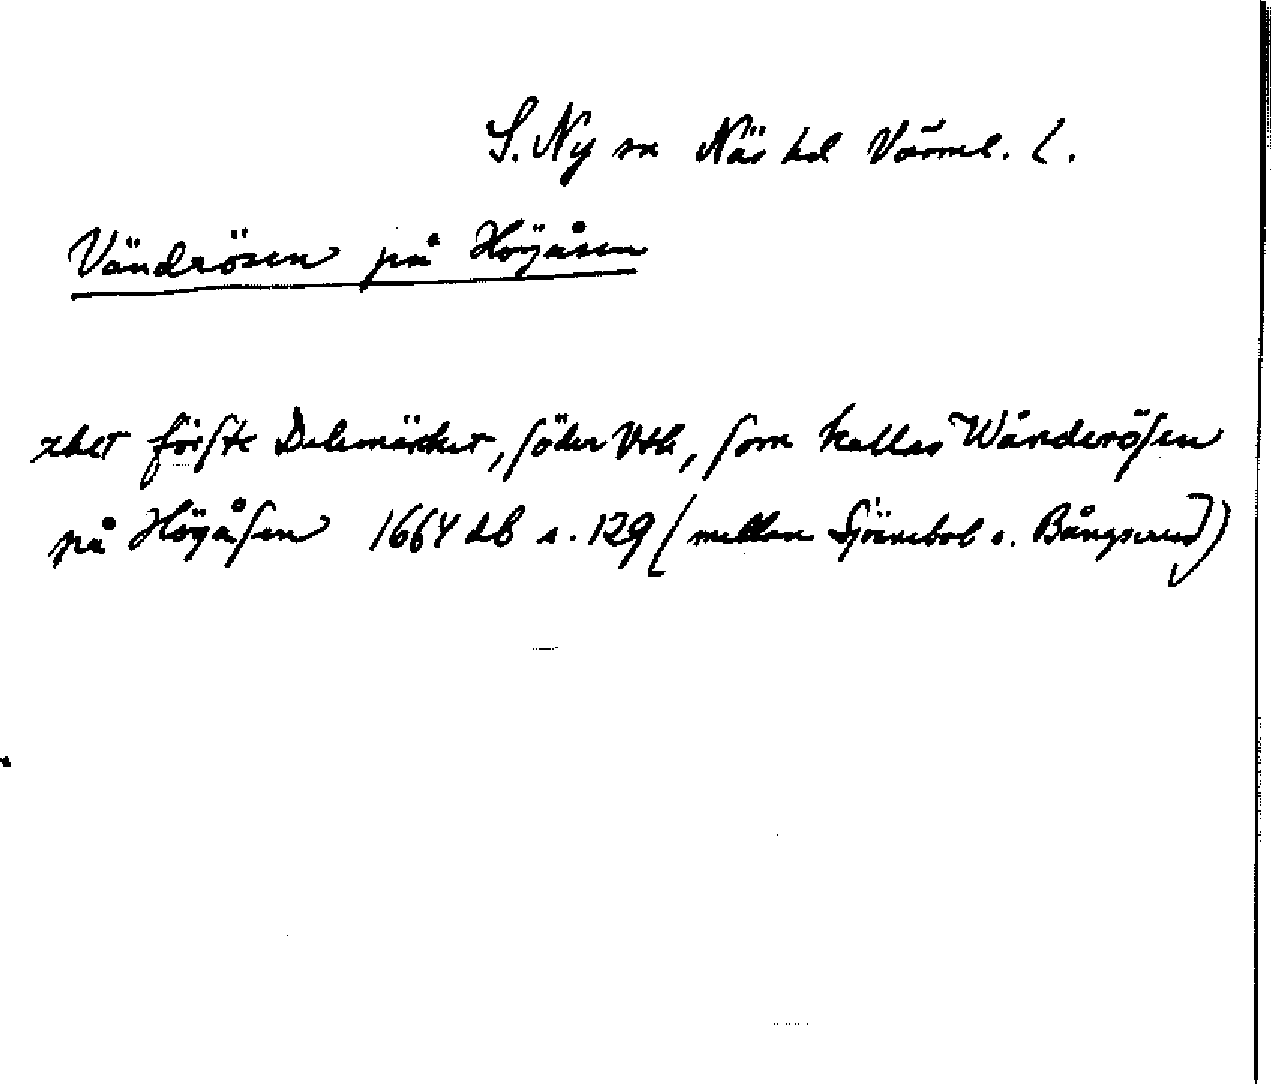 S. Ny sn Näs hd Värml. l.
Vändrösen på Högåsen
det förste Delemärket, söder Vth, som kallas Wänderösen
på Högåsen 1664 db s. 129 ([mellan Sjönnebol o. Bångsrud])